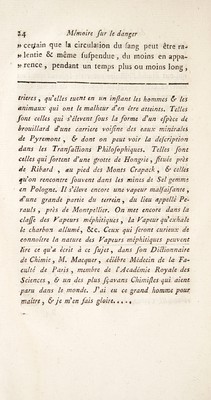 24 Mémoire sur le danger
» certain que la circulation du sang peut être ra-
» lentie & même suspendue, du moins en appa-
» rence, pendant un temps plus ou moins long,
trieres, qu'elles tuent en un instant les hommes & les
animaux qui ont le malheur d'en être atteints. Telles
sont celles qui s'élevent sous la forme d'un espèce de
brouillard d'une carriere voisine des eaux minérales
de Pyremont, & dont on peut voir la description
dans les Transactions Philosophiques. Telles sont
celles qui sortent d'une grotte de Hongrie, située près
de Ribard, au pied des Monts Crapack, & celles
qu'on rencontre souvent dans les mines de Sel gemme
en Pologne. Il s'éleve encore une vapeur malfaisante,
d'une grande partie du terrein, du lieu appellé Pe-
rauls, près de Montpellier. On met encore dans la
classe des Vapeurs méphitiques, la Vapeur qu'exhale
le charbon allumé, &c. Ceux qui seront curieux de
connoître la nature des Vapeurs méphitiques peuvent
lire ce qu'a écrit à ce sujet, dans son Dictionnaire
de Chimie, M. Macquer, célèbre Médecin de la Fa-
culté de Paris, membre de l'Académie Royale des
Sciences, & un des plus sçavans Chimistes qui aient
paru dans le monde. J'ai eu ce grand homme pour
maître, & je m'en fais gloire....